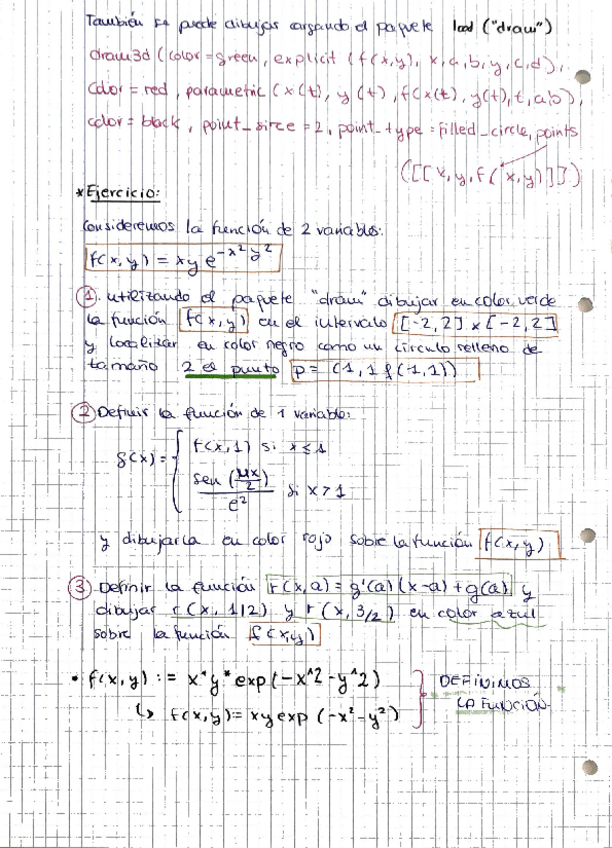 También se puede dibujar cargando el paquete load ("draw")
draw3d (color=green, explicit (f(x,y), x,a,b,y,c,d),
color=red, parametric (x(t), y(t), f(x(t), y(t),t,a,b),
color=black, point_sirce=2, point_type=filled_circle, points
([[x,y,f(x,y)]])
*Ejercicio:
Consideremos la función de 2 variables:
f(x,y) = xy e^-x² y²
① utilizando el paquete "draw" dibujar en color verde
la función f(x,y) en el intervalo [-2,2] x [-2,2]
y localizar en color negro como un círculo relleno de
tamaño 2 el punto p = (1,1 f(1,1))
② Definir la función de 1 variable:
g(x)= { f(x,1) si x≤1
sen (πx/2) / e² si x>1
y dibujarla en color rojo sobre la función f(x,y)
③ Definir la función r(x,a) = g'(a)(x-a)+g(a) y
dibujar r(x,1/2) y r(x,3/2) en color azul
sobre la función f(x,y)
• f(x,y) := x*y*exp(-x^2-y^2) } DEFINIMOS
↳ f(x,y):= xy exp (-x²-y²) LA FUNCIÓN